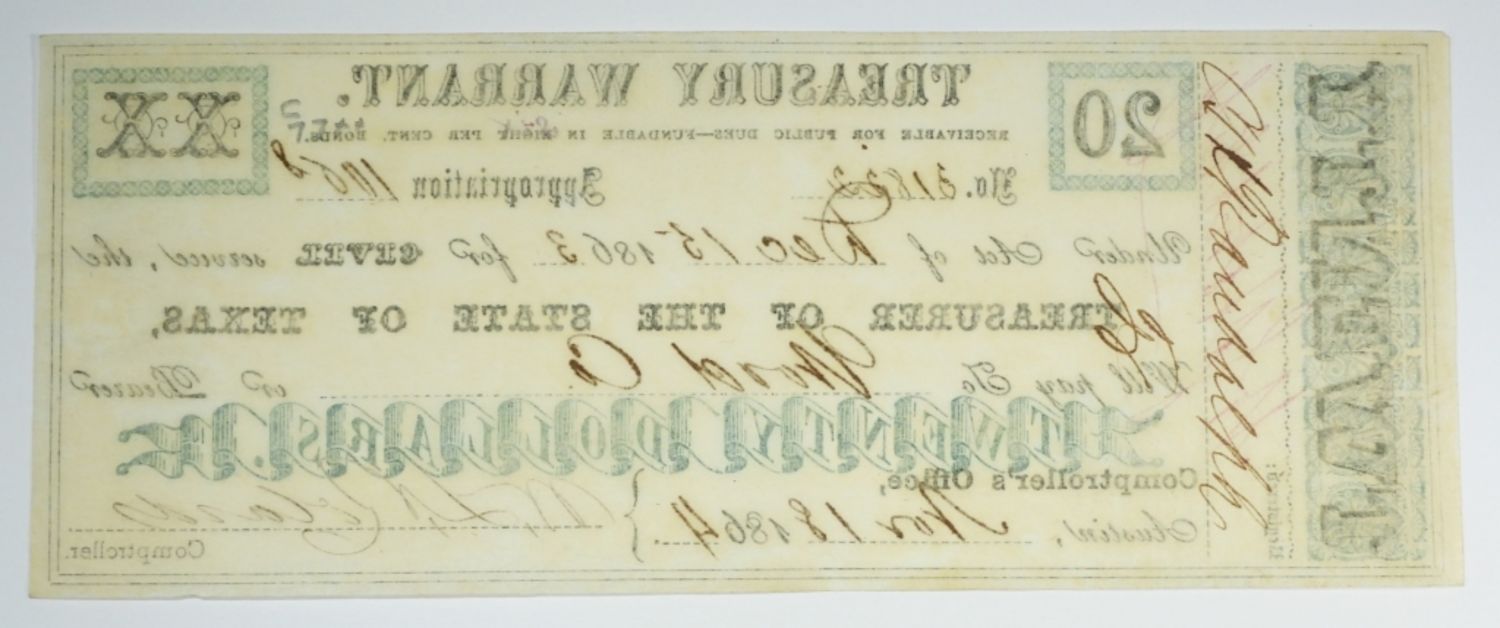 TWENTY
TREASURY WARRANT.
20
XX
RECEIVABLE FOR PUBLIC DUES—FUNDABLE IN EIGHT PER CENT. BONDS.
No. 3182 Appropriation 1068
Under Act of Dec 15 1863 for CIVIL service, the
TREASURER OF THE STATE OF TEXAS,
Will pay To Ward Co or Bearer
TWENTY DOLLARS.
Comptroller's Office,
Austin, Nov 18 1864.
Comptroller.
Registered: